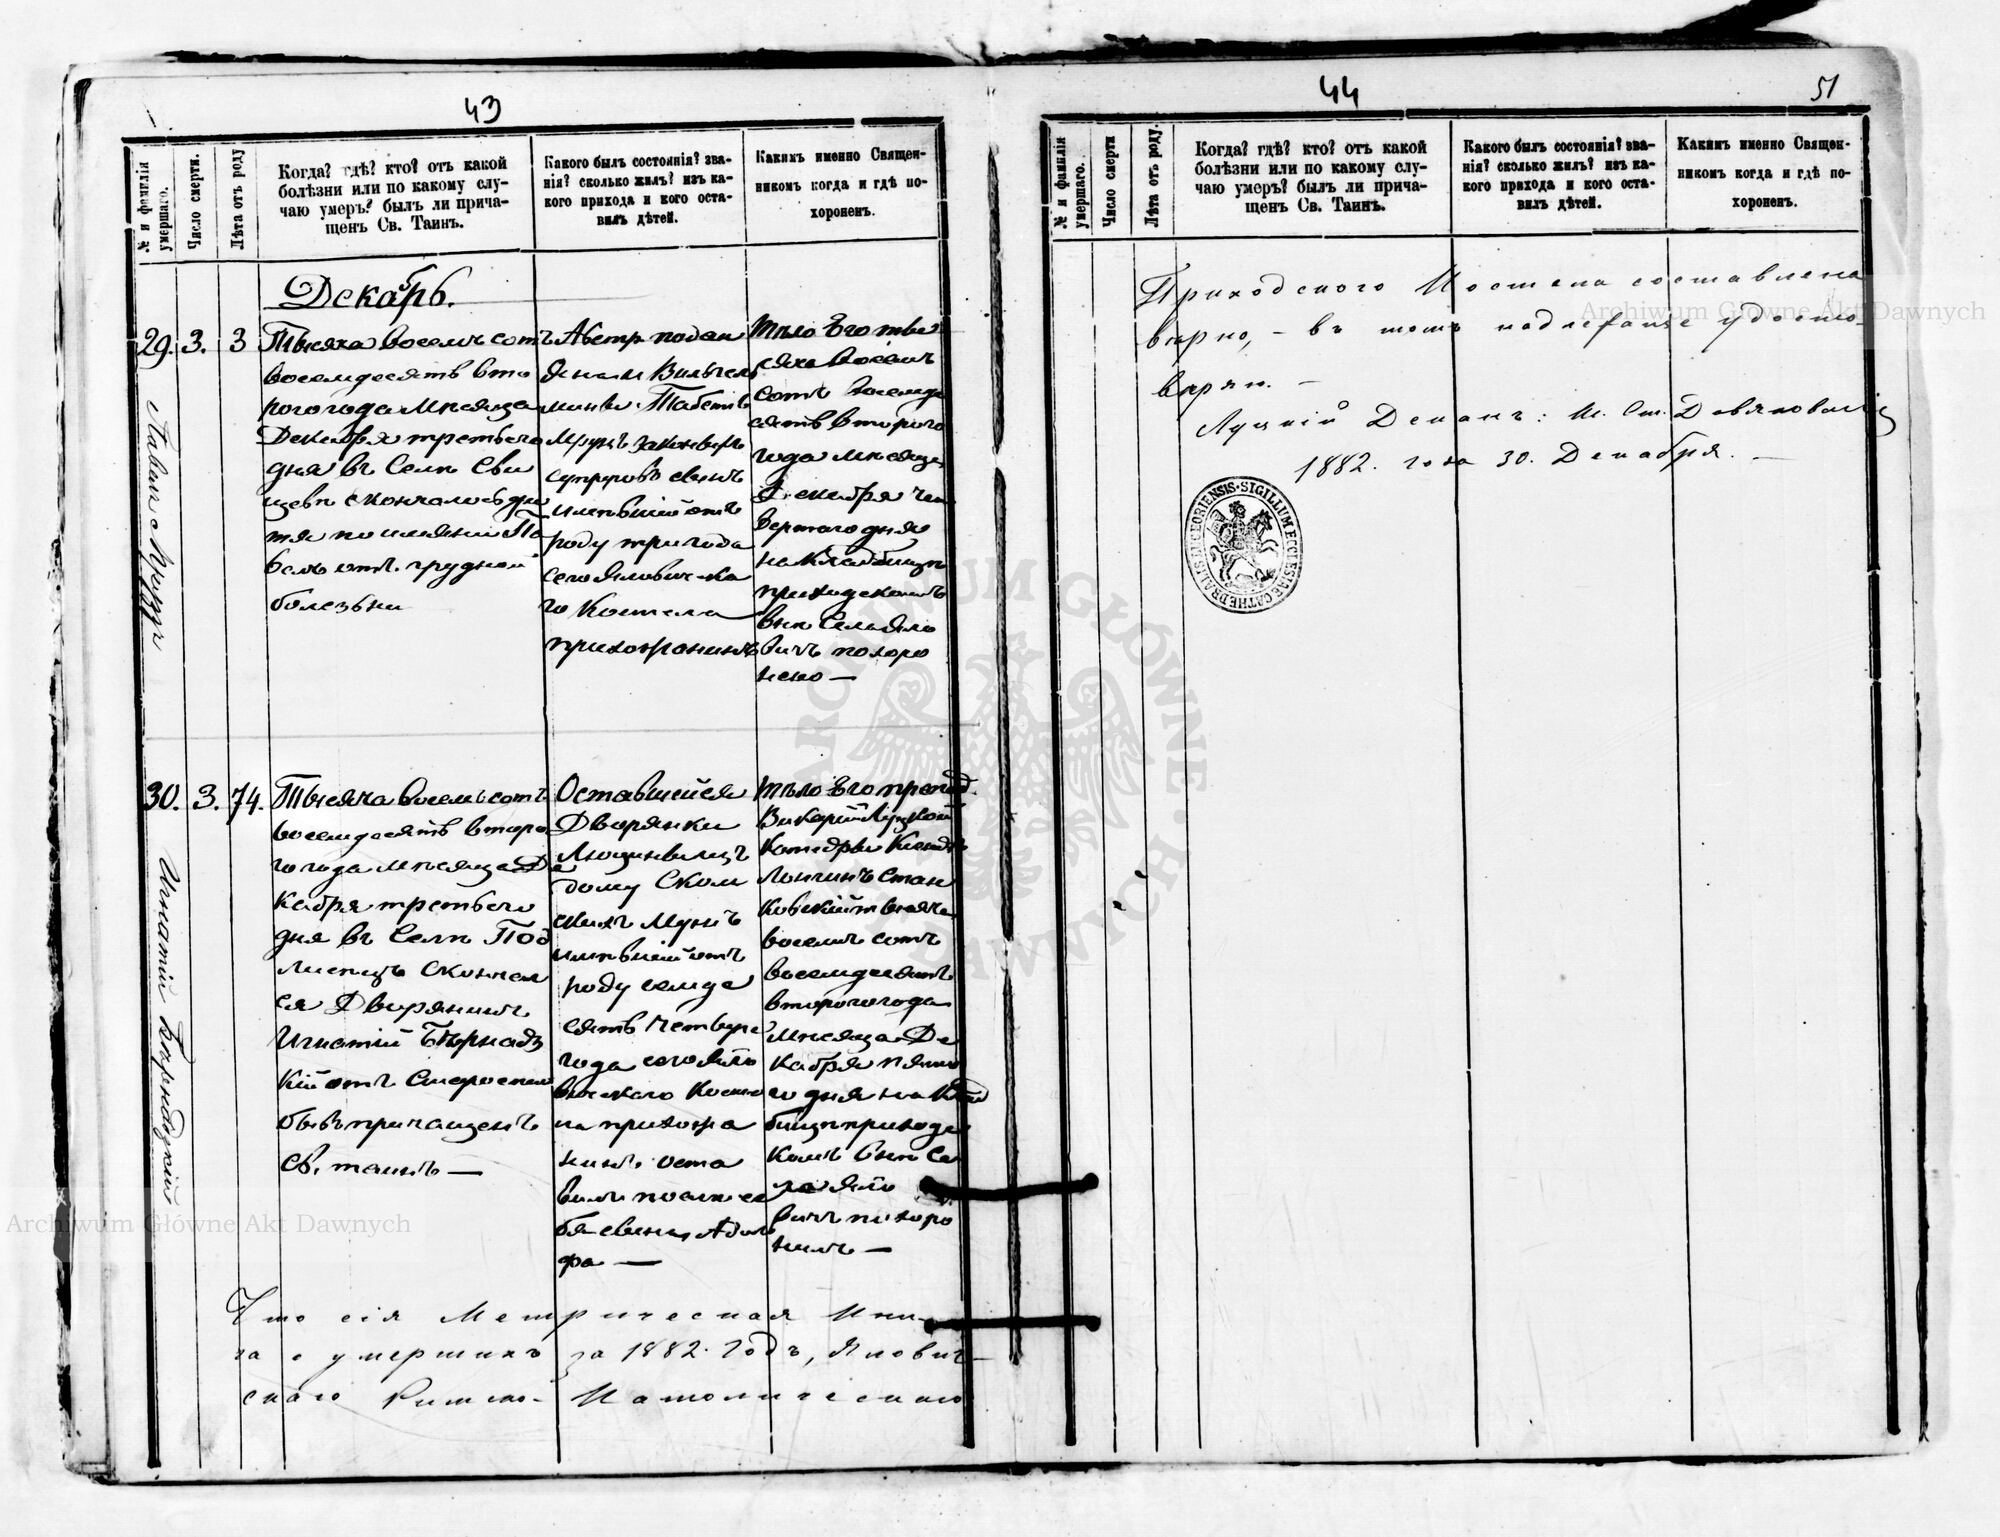 43
№ и фамилія умершаго.
Число смерти.
Лѣта отъ роду
Когда? гдѣ? кто? отъ какой
болѣзни или по какому слу-
чаю умеръ? былъ ли прича-
щенъ Св. Таинъ.
Какого былъ состоянія? зва-
нія? сколько жилъ? изъ ка-
кого прихода и кого оста-
вилъ дѣтей.
Какимъ именно Священ-
никомъ когда и гдѣ по-
хороненъ.
Декабрь.
29. 3. 3
Тысяча восемьсотъ
восемдесятъ вто
рого года мѣсяца
Декабря третьего
дня въ Селѣ Сви
щевѣ скончалось ди
тя по имени Па
велъ отъ грудной
болезьни
Австр. подан
мѣвшій отъ
роду три года
сего Яловичска
го Костела
прихожанинъ
Тѣло Его тыся
сяча восемь
сотъ восемде
сятъ второго
года мѣсяца
Декабря чет
вертого дня
на кладбищѣ
приходскомъ
внѣ Села Яло
вичъ похоро
нено —
30. 3. 74.
Игнатій Бернадзкій
Тысяча восемьсотъ
восемдесятъ второ
го года мѣсяца Де
кабря третьего
дня въ Селѣ Под
лиспцъ скончал
ся Дворянинъ
Игнатій Бернадз
кій отъ старости
бывъ причащенъ
Св. таинъ —
Оставшейся
Дворянки
дому Ском
скихъ Мужъ
имѣвшій отъ
роду семде
сятъ четыре
года сего Яло
вичского Косте
ла прихожа
нинъ оста
вилъ послѣ се
бя сына Адоль
фа —
Тѣло Его препод.
Викарій Луцкой
Катедры Ксендзъ
Лонгинъ Стан
ковскій тысяча
восемь сотъ
восемдесятъ
второго года
мѣсяца Де
кабря пято
го дня на клад
бищѣ приходс
комъ внѣ Се
ла Яло
вичъ похоро
нилъ —
Что сія Метрическая Кни-
га о умершихъ за 1882. Годъ, Ялович-
скаго Римско-Католическаго
44
51
№ и фамилія умершаго.
Число смерти
Лѣта отъ роду.
Когда? гдѣ? кто? отъ какой
болѣзни или по какому слу-
чаю умеръ? былъ ли прича-
щенъ Св. Таинъ.
Какого былъ состоянія? зва-
нія? сколько жилъ? изъ ка-
кого прихода и кого оста-
вилъ дѣтей.
Какимъ именно Священ-
никомъ когда и гдѣ по-
хороненъ.
Приходского Костела составлена
вѣрно, – въ томъ надлежаще удосто-
вѣряю. –
Луцкій Деканъ:
1882. года 30. Декабря. —
SIGILLUM ECCLESIAE CATHEDRALIS LUCEORIENSIS
Archiwum Główne Akt Dawnych
Archiwum Główne Akt Dawnych
ARCHIWUM GŁÓWNE AKT DAWNYCH